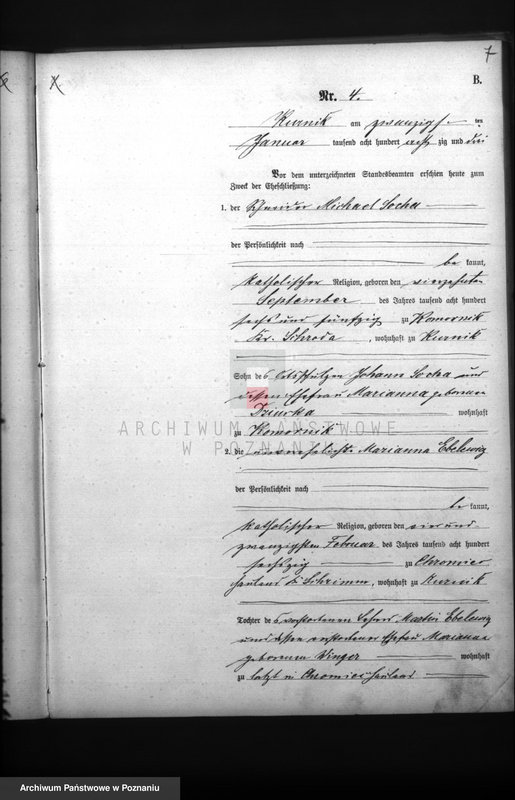 7
B.
Nr. 4.
Kurnik am zwanzigsten
Januar tausend acht hundert achtzig und drei
Vor dem unterzeichneten Standesbeamten erschien heute zum
Zweck der Eheschließung:
1. der Schneider Michael Socha
der Persönlichkeit nach
be kannt,
katholischer Religion, geboren den vierzehnten
September des Jahres tausend acht hundert
sechs und fünfzig zu Komornik
Kr. Schroda, wohnhaft zu Kurnik
Sohn des Johann Socha und
dessen Ehefrau Marianna geborenen
wohnhaft
zu Komornik
ARCHIWUM PAŃSTWOWE
W POZNANIU
2. die unverehelichte Marianna Ebelewig
der Persönlichkeit nach
be kannt,
katholischer Religion, geboren den vierund-
zwanzigsten Februar des Jahres tausend acht hundert
sechszig zu
hauland Kr. Schrimm, wohnhaft zu Kurnik
Tochter des verstorbenen Martin Ebelewig
und dessen verstorbener Ehefrau Marianna
geborenen Winger wohnhaft
zu letzt in hauland
Archiwum Państwowe w Poznaniu